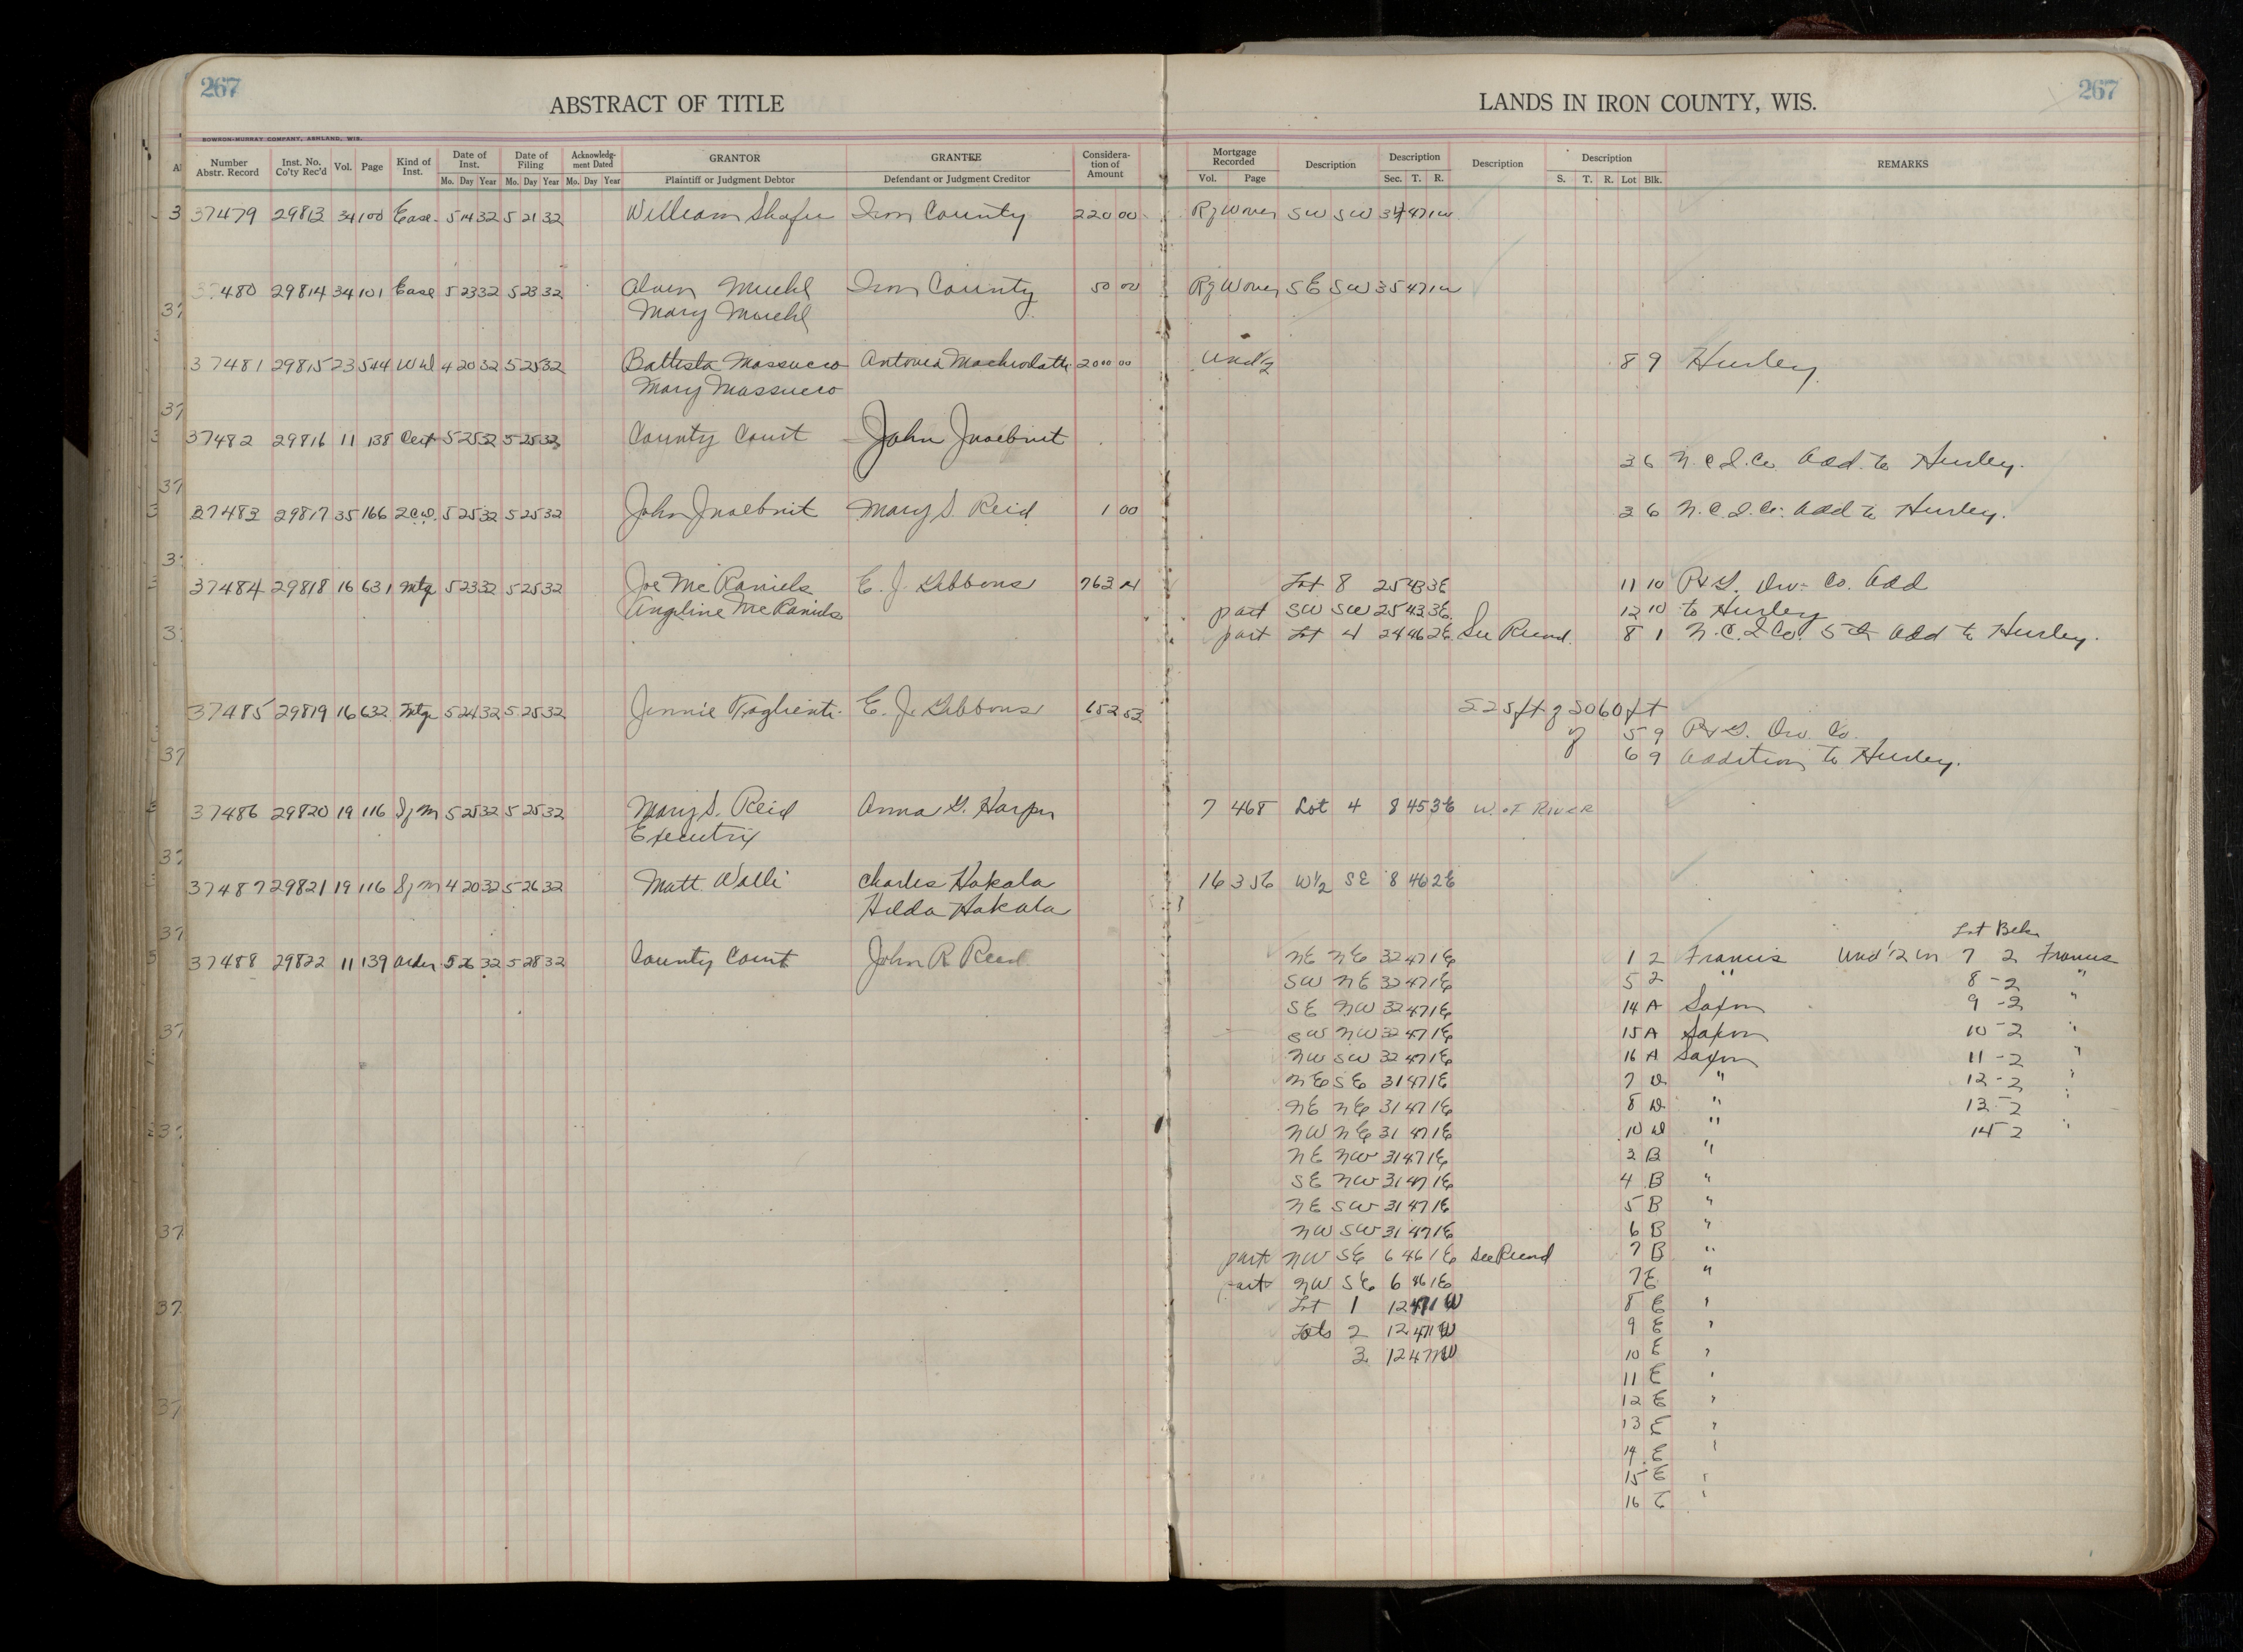 267
ABSTRACT OF TITLE
LANDS IN IRON COUNTY, WIS.
267
BOWRON-MURRAY COMPANY, ASHLAND, WIS.
Number Abstr. Record Inst. No. Co'ty Rec'd Vol. Page Kind of Inst. Date of Inst. Date of Filing Acknowledgment Dated GRANTOR GRANTEE Consideration of Amount Mortgage Recorded Description Description Description Description REMARKS
Mo. Day Year Mo. Day Year Mo. Day Year Plaintiff or Judgment Debtor Defendant or Judgment Creditor Vol. Page Sec. T. R. S. T. R. Lot Blk.
37479 29813 34 100 Ease. 5 14 32 5 21 32 William Shafer Iron County 220 00 Rg W over SW SW 34 47 1W
37480 29814 34 101 Ease 5 23 32 5 23 32 Alvin Muehl Iron County 50 00 Rg W over SE SW 35 47 1W
Mary Muehl
37481 29815 23 544 Wd 4 20 32 5 25 32 Battista Massucco 2000 00 Und ½ 8 9 Hurley
Mary Massucco
37482 29816 11 138 Cert 5 25 32 5 25 32 County Court John
3 6 N.C.I.Co Add. to Hurley.
37483 29817 35 166 2CD. 5 25 32 5 25 32 John Mary S. Reid 1 00 3 6 N.C.I.Co. Add to Hurley.
37484 29818 16 631 Mtg 5 23 32 5 25 32 Joe McRaniels E. J. Gibbons 763 Lot 8 25 43 3E 11 10 Div. Co. Add
Angeline McRaniels part SW SW 25 43 3E 12 10 to Hurley
part Lot 4 24 46 2E See Record. 8 1 N.C.I.Co. 5th Add to Hurley.
37485 29819 16 632 Mtg 5 24 32 5 25 32 Jennie E. J. Gibbons 652 53 S 25 ft of 60 ft
of 5 9 Div. Co.
6 9 Addition to Hurley.
37486 29820 19 116 Sjm 5 25 32 5 25 32 Mary S. Reid Anna G. Harper 7 468 Lot 4 8 45 3E W. of RIVER
Executrix
37487 29821 19 116 Sjm 4 20 32 5 26 32 Matt Walli Charles Hakala 16 356 W½ SE 8 46 2E
Hilda Hakala
Lot Blk
37488 29822 11 139 Order 5 26 32 5 28 32 County Court John R Reed NE NE 32 47 1E 1 2 Francis Und ½ in 7 2 Francis
SW NE 32 47 1E 5 2 " 8-2 "
SE NW 32 47 1E 14 A Saxon 9-2 "
SW NW 32 47 1E 15 A Saxon 10-2 "
NW SW 32 47 1E 16 A Saxon 11-2 "
NE SE 31 47 1E 7 D " 12-2 "
NE NE 31 47 1E 8 D " 13-2 "
NW NE 31 47 1E 10 D " 14 2 "
NE NW 31 47 1E 3 B "
SE NW 31 47 1E 4 B "
NE SW 31 47 1E 5 B "
NW SW 31 47 1E 6 B "
part NW SE 6 46 1E See Record 7 B "
part NW SE 6 46 1E 7 E "
Lot 1 12 47 1W 8 E "
Lots 2 12 47 1W 9 E "
3 12 47 1W 10 E "
11 E "
12 E "
13 E "
14 E "
15 E "
16 E "